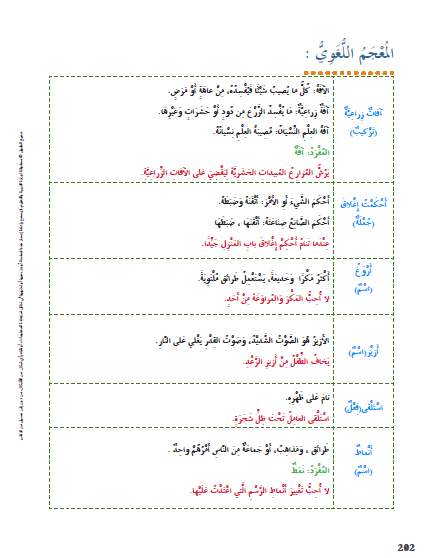 المُعْجَمُ اللُّغَوِيُّ :
آفَاتٌ زِرَاعِيَّةٌ
(تَرْكِيبٌ)
الآفَةُ: كُلُّ مَا يُصِيبُ شَيْئًا فَيُفْسِدُهُ، مِنْ عَاهَةٍ أَوْ مَرَضٍ.
آفَةٌ زِرَاعِيَّةٌ: مَا يُفْسِدُ الزَّرْعَ مِنْ دُودٍ أَوْ حَشَرَاتٍ وَغَيْرِهَا.
آفَةُ العِلْمِ النِّسْيَانُ: مُصِيبَةُ العِلْمِ نِسْيَانُهُ.
المُفْرَدُ: آفَةٌ
يَرُشُّ المُزَارِعُ المُبِيدَاتِ الحَشَرِيَّةَ لِيَقْضِيَ عَلَى الآفَاتِ الزِّرَاعِيَّةِ.
أَحْكَمْتُ إِغْلَاقَ
(جُمْلَةٌ)
أَحْكَمَ الشَّيْءَ أَوِ الأَمْرَ: أَتْقَنَهُ وَضَبَطَهُ.
أَحْكَمَ الصَّانِعُ صِنَاعَتَهُ: أَتْقَنَهَا ، ضَبَطَهَا
عِنْدَمَا تَنَامُ أَحْكِمْ إِغْلَاقَ بَابِ المَنْزِلِ جَيِّدًا.
أَرْوَغُ
(اسْمٌ)
أَكْثَرُ مَكْرًا وَخَدِيعَةً، يَسْتَعْمِلُ طَرَائِقَ مُلْتَوِيَةً.
لا أُحِبُّ المَكْرَ وَالمُرَاوَغَةَ مِنْ أَحَدٍ.
أَزِيزٌ (اسْمٌ)
الأَزِيزُ هُوَ الصَّوْتُ الشَّدِيدُ، وَصَوْتُ القِدْرِ يَغْلِي عَلَى النَّارِ.
يَخَافُ الطِّفْلُ مِنْ أَزِيزِ الرَّعْدِ.
اسْتَلْقَى(فِعْلٌ)
نَامَ عَلَى ظَهْرِهِ.
اسْتَلْقَى العَامِلُ تَحْتَ ظِلِّ شَجَرَةٍ.
أَنْمَاطٌ
(اسْمٌ)
طَرَائِقُ ، وَمَذَاهِبُ، أَوْ جَمَاعَةٌ مِنَ النَّاسِ أَمْرُهُمْ وَاحِدٌ .
المُفْرَدُ: نَمَطٌ
لا أُحِبُّ تَغْيِيرَ أَنْمَاطِ الرَّسْمِ الَّتِي اعْتَدْتُ عَلَيْهَا.
202